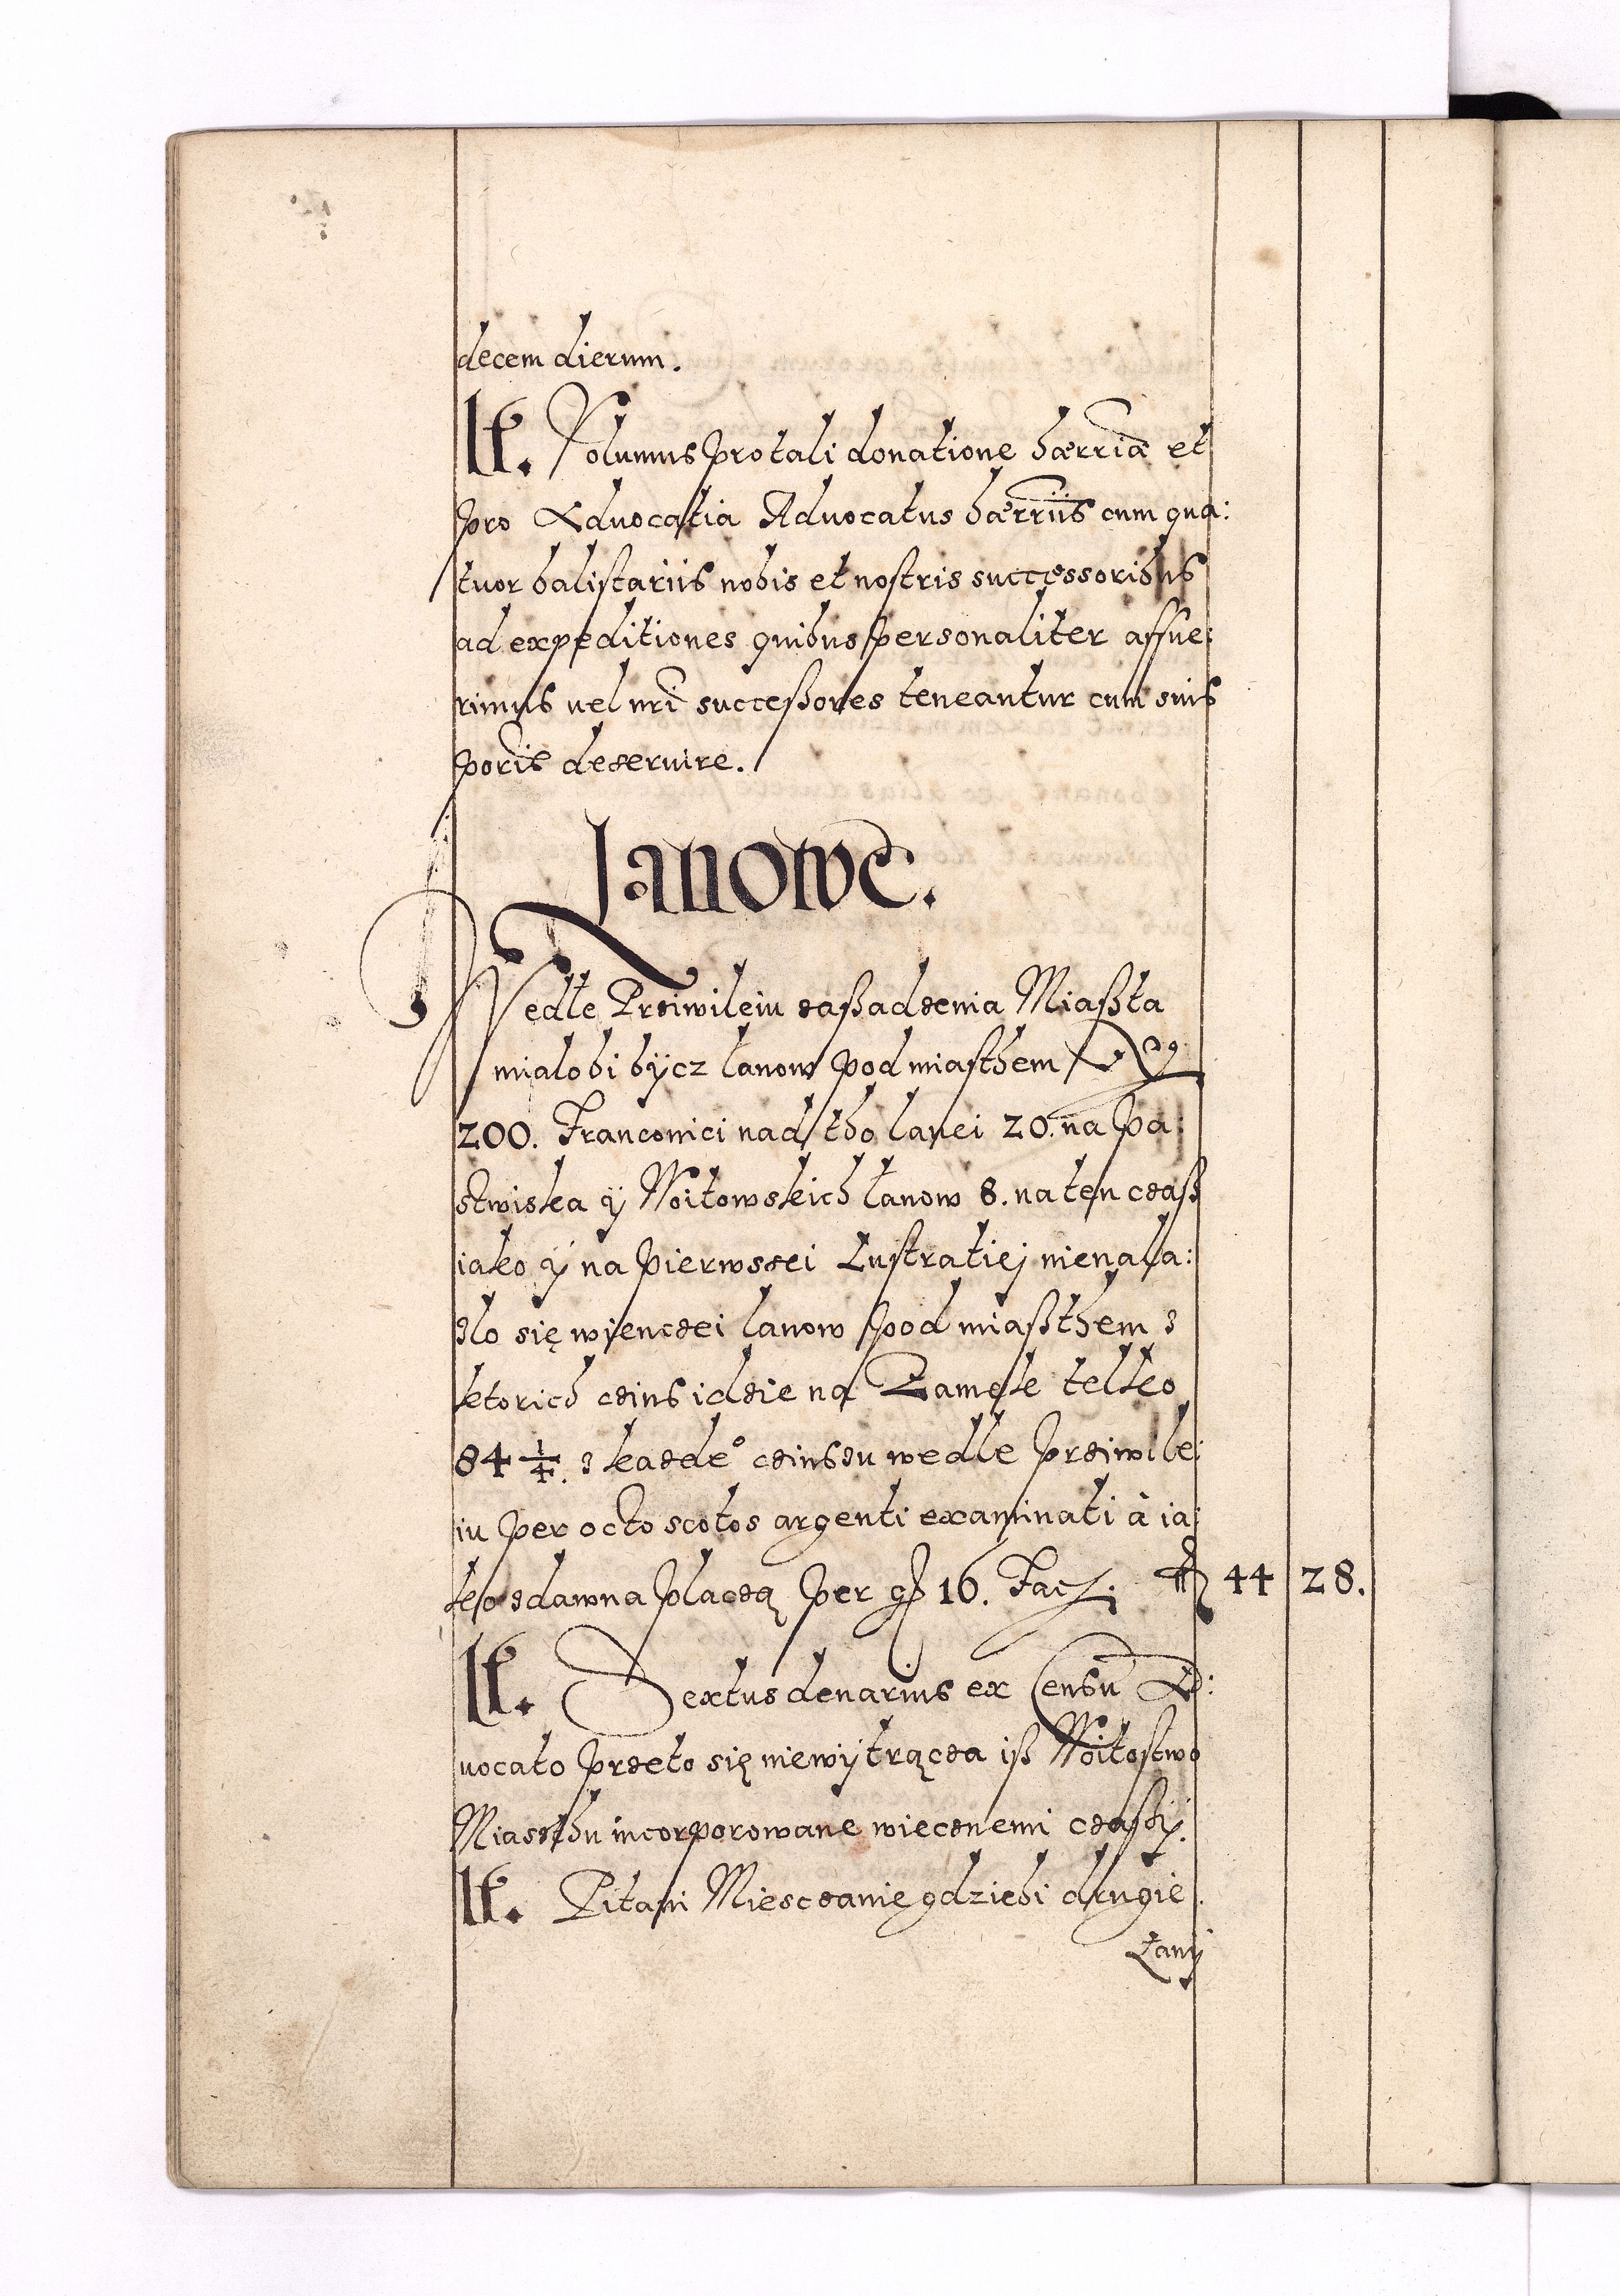 decem dierum.
It. Volumus pro tali donatione hærriæ et
pro Advocatia Advocatus hærriis cum qua:
tuor balistariis nobis et nostris successoribus
ad expeditiones quibus personaliter affue:
rimus vel nri successores teneantur cum suis
poris deservire.
Janowc.
Wedle Prziwileiu zaßadzenia Miaßta
mialobi bÿcz lanow pod miasthem
200. Franconici nad tho lanei 20. na pa:
stwiska ÿ Woitowskich lanow 8. na ten czaß
iako ÿ na pierwszei Lustratiej nienala:
zlo się wienczei lanow pod miaßthem z
ktorich czins idzie na Zamek telko
84 1/4. z kazde° czinszu wedle prziwile:
iu per octo scotos argenti examinati à ia:
ko zdawna placzą per gß 16. Facz. 44 28.
It. Sextus denarius ex Censu Ad:
vocato przeto się niewÿtrącza iß Woitostwo
Miasthu incorporowane wiecznemi czaßÿ.
It. Pitani Miesczanie gdziebi drugie
Lanÿ